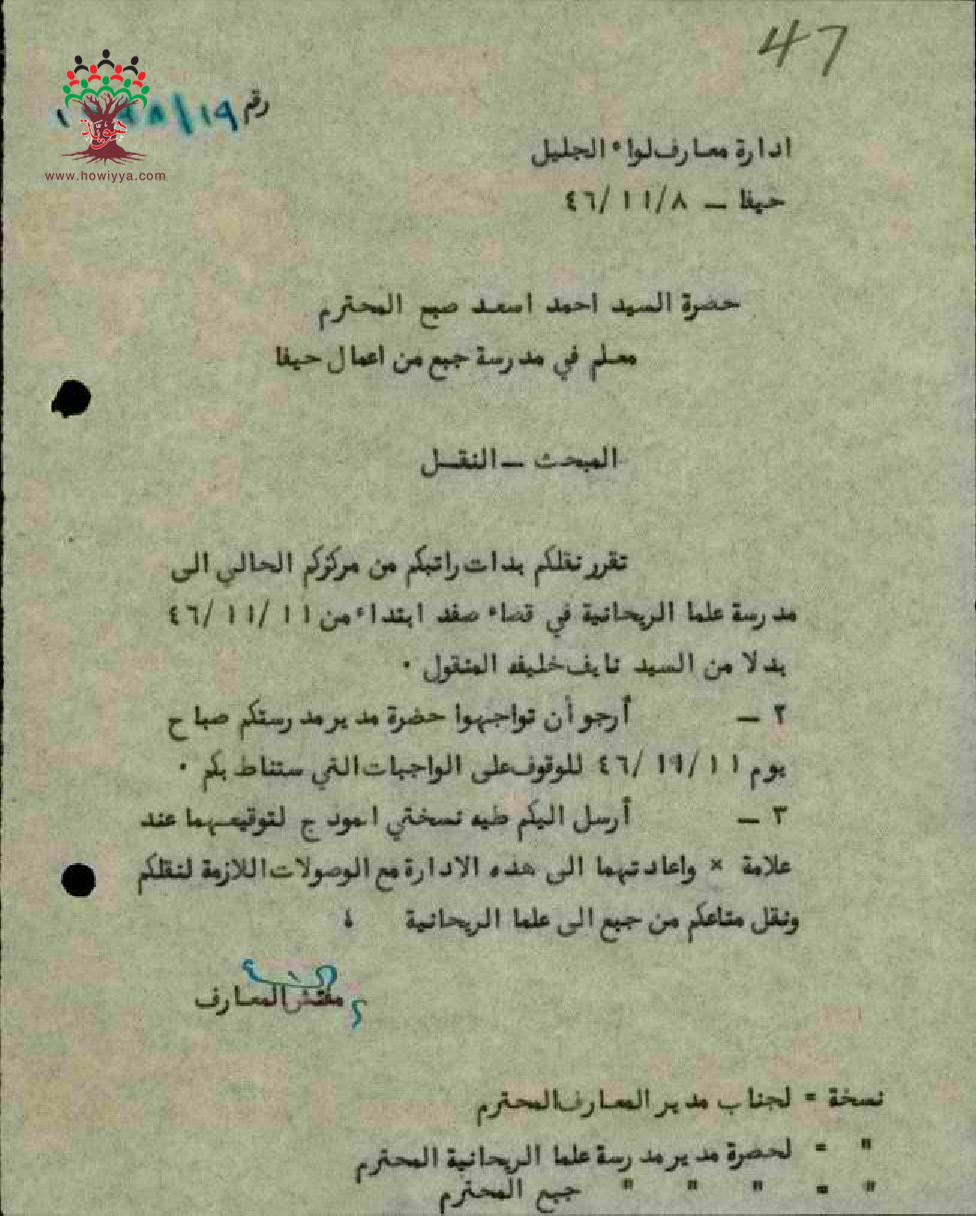 47
رقم ١٩/
www.howiyya.com
ادارة معارف لواء الجليل
حيفا ــ ٤٦/١١/٨
حضرة السيد احمد اسعد صبح المحترم
معلم في مدرسة جبع من اعمال حيفا
المبحث ــ النقل
تقرر نقلكم بذات راتبكم من مركزكم الحالي الى
مدرسة علما الريحانية في قضاء صفد ابتداء من ٤٦/١١/١١
بدلا من السيد نايف خليفه المنقول ٠
٢ ــ أرجو أن تواجهوا حضرة مدير مدرستكم صباح
يوم ٤٦/١١/١١ للوقوف على الواجبات التي ستناط بكم ٠
٣ ــ أرسل اليكم طيه نسختي اموذج لتوقيعهما عند
علامة × واعادتهما الى هذه الادارة مع الوصولات اللازمة لنقلكم
ونقل متاعكم من جبع الى علما الريحانية
مفتش المعارف
نسخة = لجناب مدير المعارف المحترم
" = لحضرة مدير مدرسة علما الريحانية المحترم
" = " " " جبع المحترم